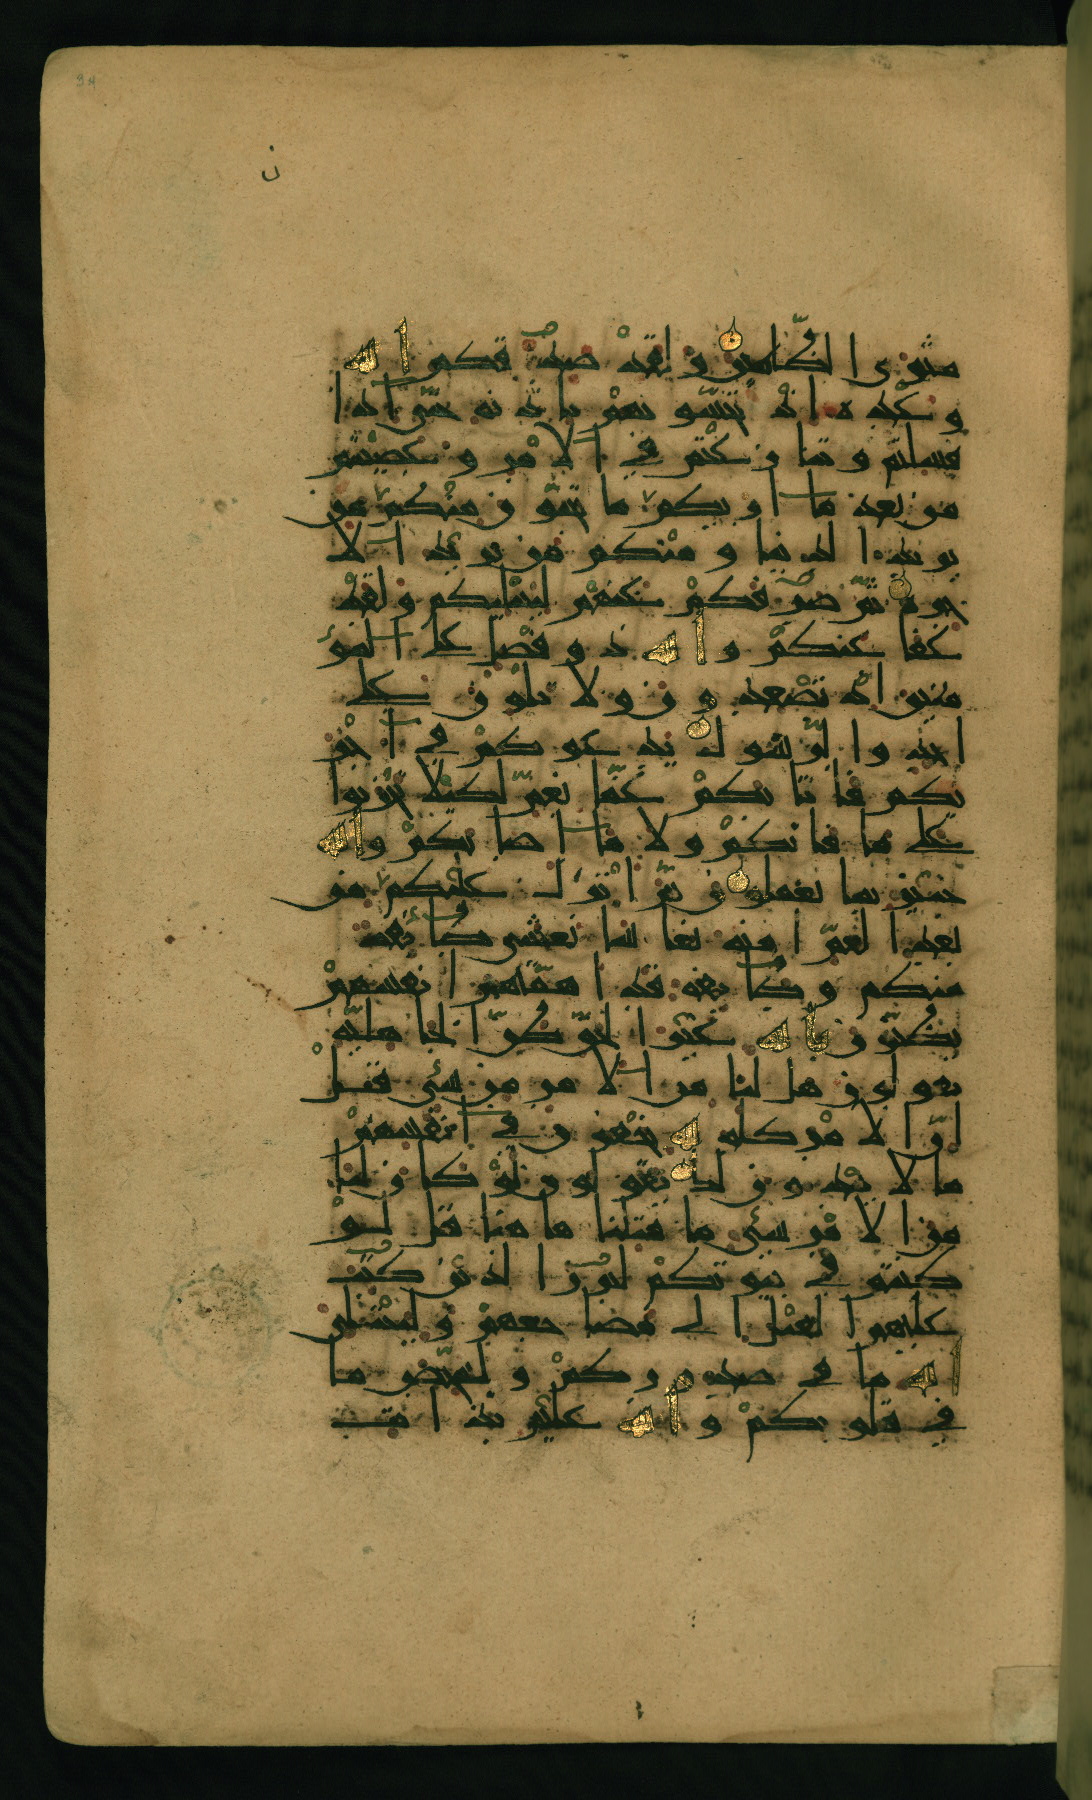 94
ن
مثوى الظالمين ولقد صدقكم الله
وعده اذ تحسونهم باذنه حتى اذا
فشلتم وتنازعتم في الامر وعصيتم
من بعد ما اريكم ما تحبون منكم من
يريد الدنيا ومنكم من يريد الا
خرة ثم صرفكم عنهم ليبتليكم ولقد
عفا عنكم والله ذو فضل على المؤ
منين اذ تصعدون ولا تلون على
احد والرسول يدعوكم في اخر
يكم فاثابكم غما بغم لكيلا تحزنوا
على ما فاتكم ولا ما اصابكم والله
خبير بما تعملون ثم انزل عليكم من
بعد الغم امنة نعاسا يغشى طائفة
منكم وطائفة قد اهمتهم انفسهم
يظنون بالله غير الحق ظن الجاهلية
يقولون هل لنا من الامر من شئ قل
ان الامر كله لله يخفون في انفسهم
ما لا يبدون لك يقولون لو كان لنا
من الامر شئ ما قتلنا ها هنا قل لو
كنتم في بيوتكم لبرز الذين كتب
عليهم القتل الى مضاجعهم وليبتلي
الله ما في صدوركم وليمحص ما
في قلوبكم والله عليم بذات